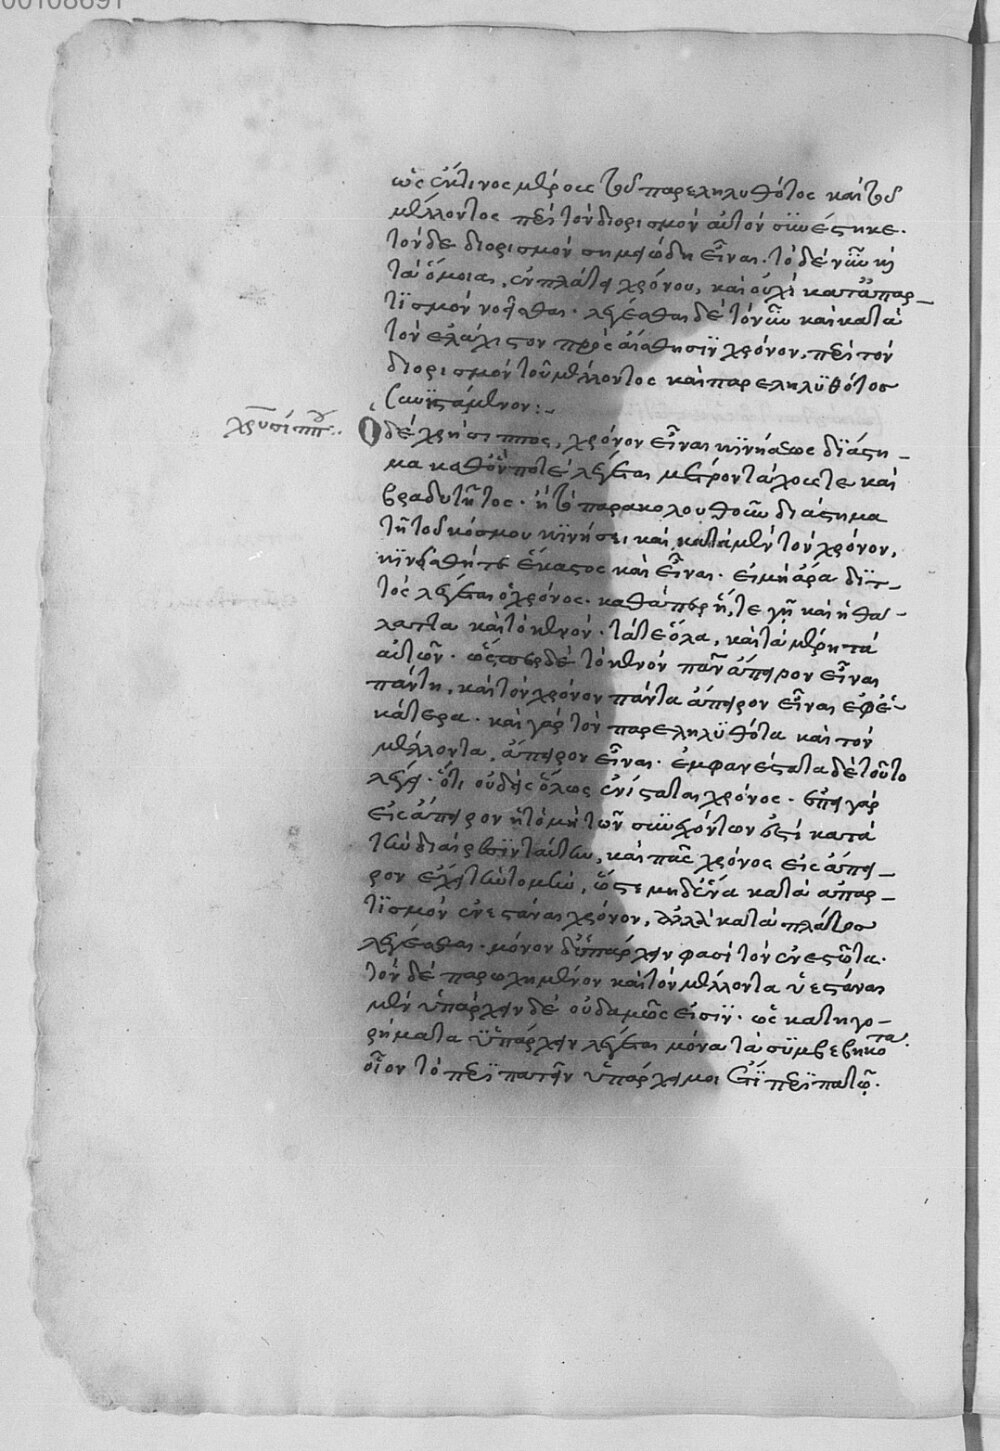 00108691
ὡς ἔκ τινος μέρους τοῦ παρεληλυθότος καὶ τοῦ
μέλλοντος περὶ τὸν διορισμὸν αὐτὸν συνέστηκε.
τὸν δὲ διορισμὸν σημειώδη εἶναι. τὸ δὲ νῦν καὶ
τὰ ὅμοια, ἐν πλάτει χρόνου, καὶ οὐχὶ κατ' ἀπαρ-
τισμὸν νοεῖσθαι. λέγεσθαι δὲ τὸ νῦν καὶ κατὰ
τὸν ἐλάχιστον πρὸς αἴσθησιν χρόνον, περὶ τὸν
διορισμὸν τοῦ μέλλοντος καὶ παρεληλυθότος
συνιστάμενον:-
χρυσίππου..
Ὁ δὲ χρήσιππος, χρόνον εἶναι κινήσεως διάστη-
μα καθ' ὃν ποτὲ λέγεται μέτρον τάχους τε καὶ
βραδυτῆτος. ἢ τὸ παρακολουθοῦν διάστημα
τῇ τοῦ κόσμου κινήσει, καὶ κατὰ μὲν τὸν χρόνον,
κινεῖσθαί τε ἕκαστος καὶ εἶναι. εἰ μὴ ἄρα διτ-
τὸς λέγεται ὁ χρόνος. καθάπερ ἥ, τε γῆ καὶ ἡ θά-
λαττα καὶ τὸ κενόν. τά τε ὅλα, καὶ τὰ μέρη τὰ
αὐτῶν. ὥσπερ δὲ τὸ κενὸν πᾶν ἄπειρον εἶναι
πάντῃ, καὶ τὸν χρόνον πάντα ἄπειρον εἶναι ἐφ' ἑ-
κάτερα. καὶ γὰρ τὸν παρεληλυθότα καὶ τὸν
μέλλοντα, ἄπειρον εἶναι. ἐμφανέστατα δὲ τοῦτο
λέγει. ὅτι οὐδεὶς ὅλως ἐνίσταται χρόνος. ἐπεὶ γὰρ
εἰς ἄπειρον ἡ τομὴ τῶν συνεχόντων ἐστὶ κατὰ
τὴν διαίρεσιν ταύτην, καὶ πᾶς χρόνος εἰς ἄπει-
ρον ἔχει τὴν τομὴν, ὥστε μηδένα κατὰ ἀπαρ-
τισμὸν ἐνεστάναι χρόνον, ἀλλὰ κατὰ πλάτος
λέγεσθαι. μόνον δ' ὑπάρχειν φασὶ τὸν ἐνεστῶτα.
τὸν δὲ παρωχημένον καὶ τὸν μέλλοντα ὑεστάναι
μὲν ὑπάρχειν δὲ οὐδαμῶς εἰσίν. ὡς κατηγο-
ρήματα ὑπάρχειν λέγεται μόνα τὰ συμβεβηκότα.
οἷον τὸ περιπατεῖν ὑπάρχει μοι ὅτε περιπατῶ.